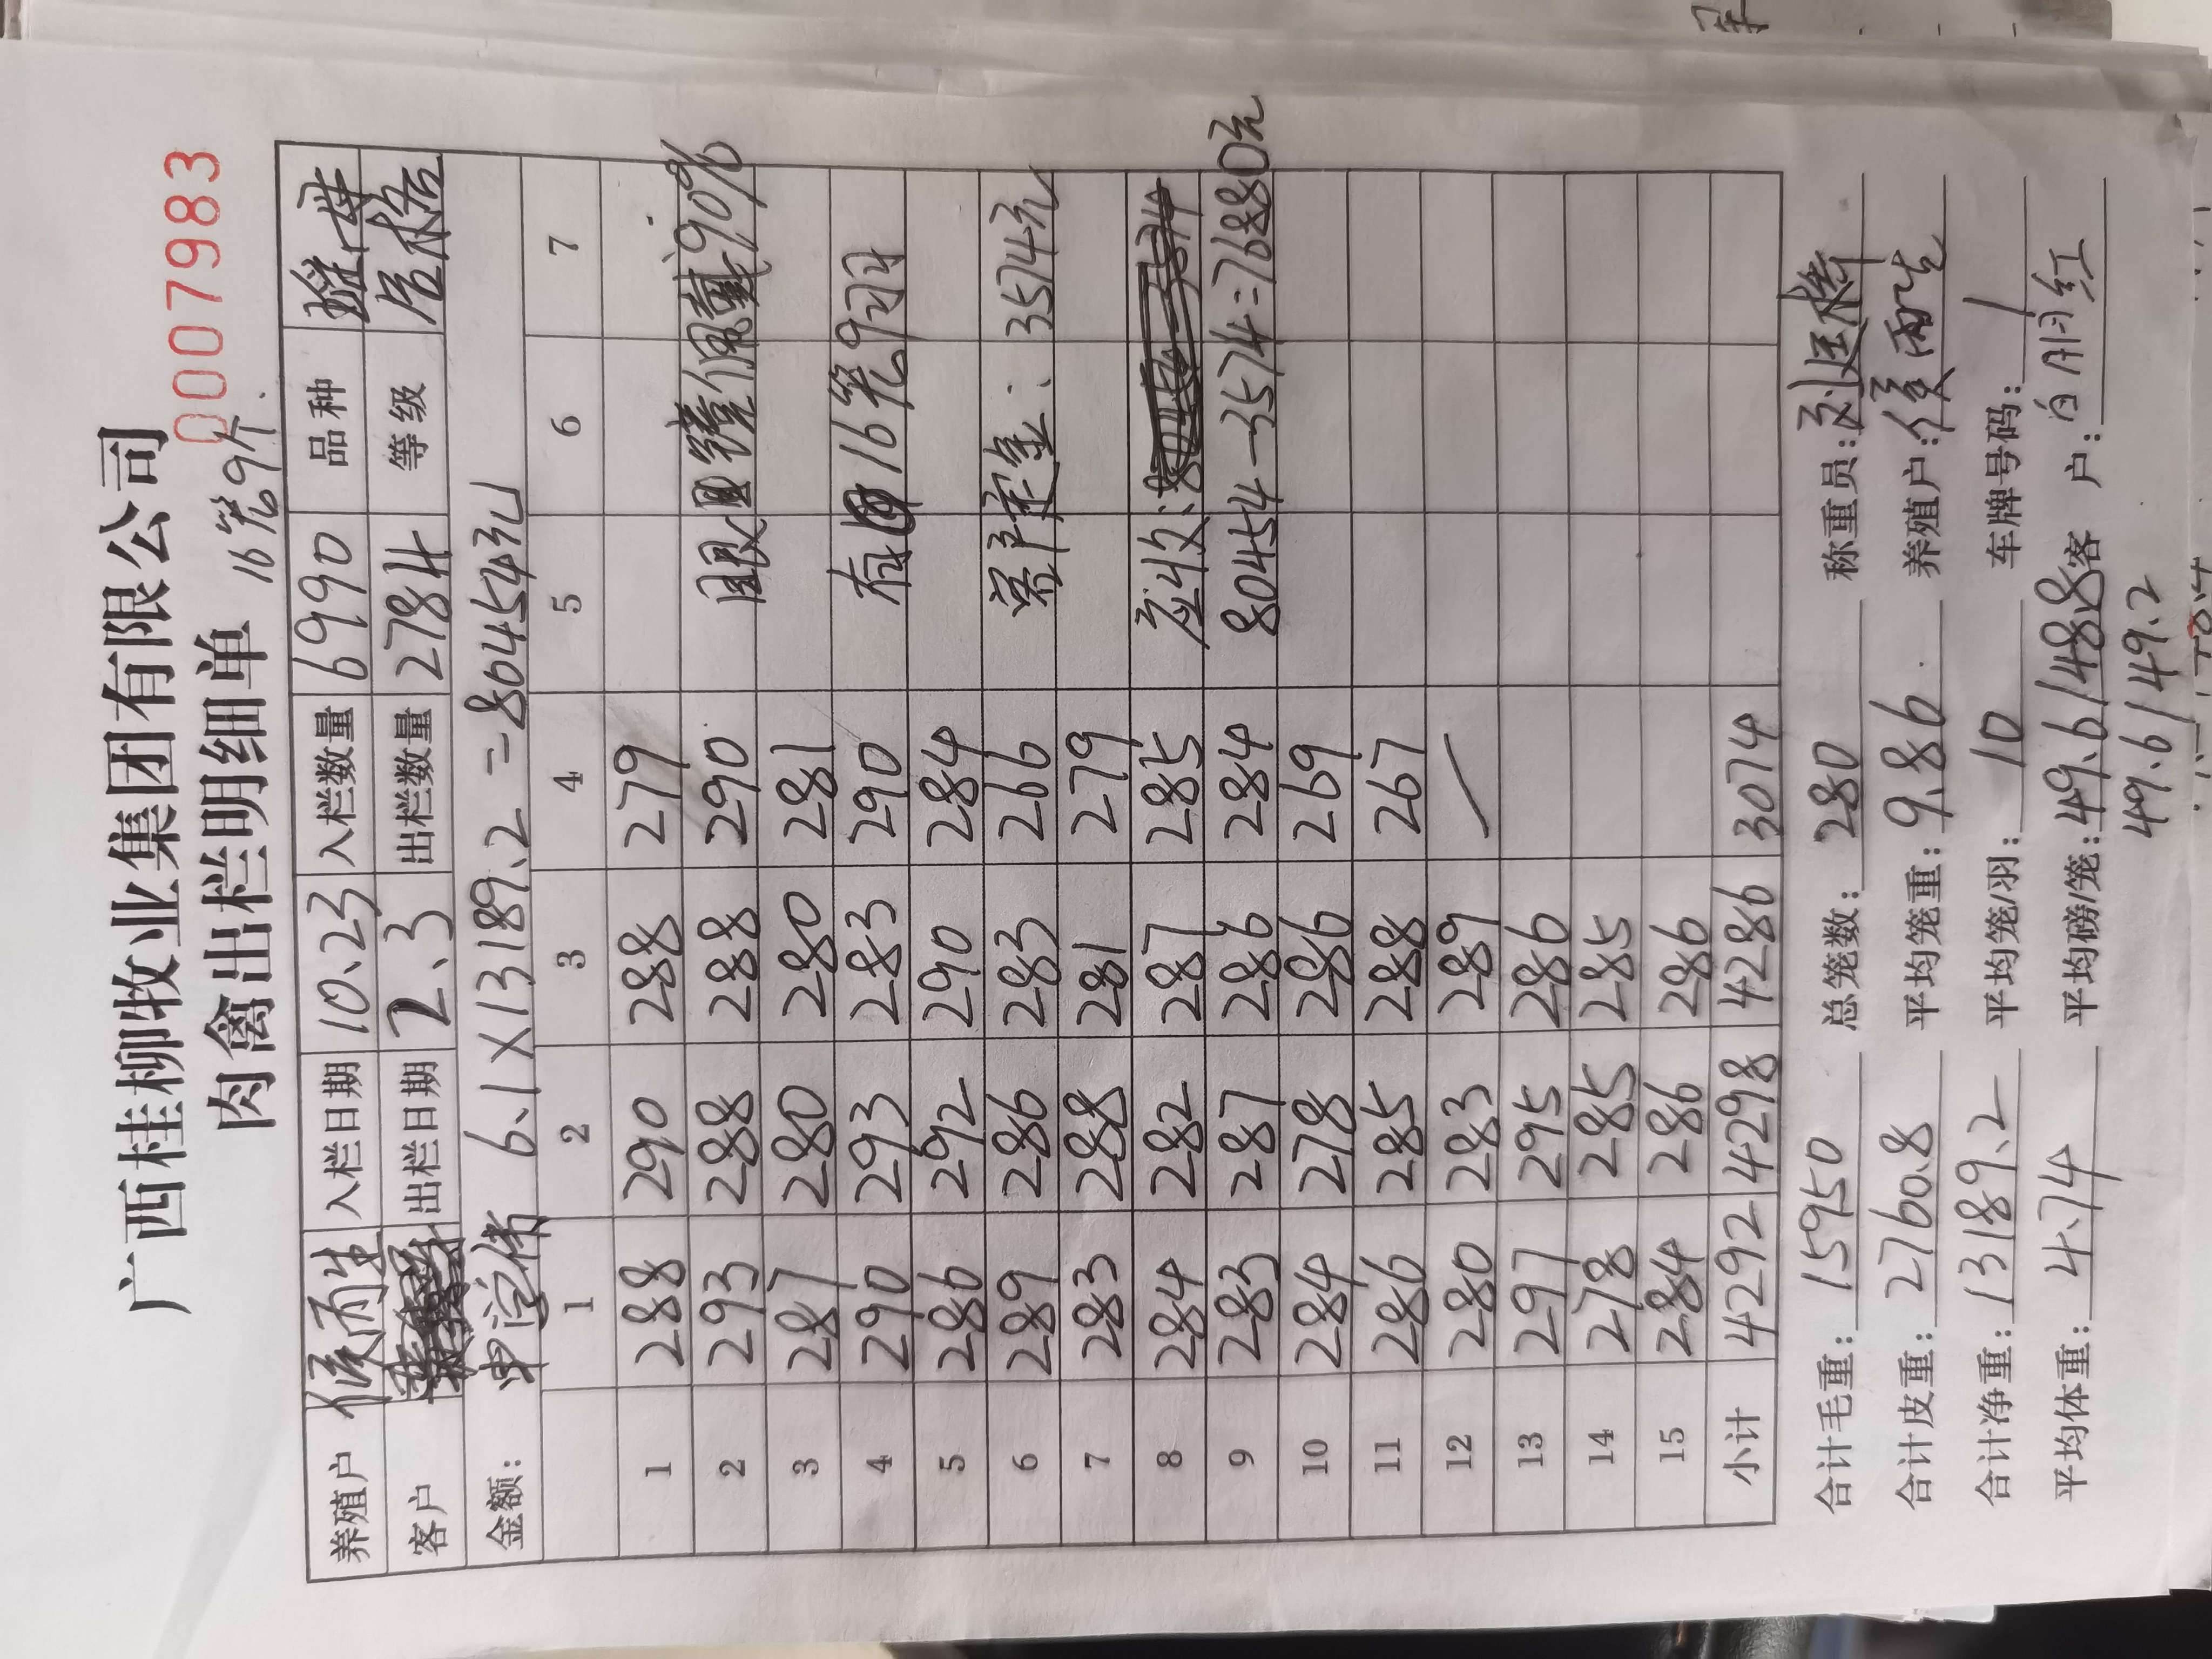 广西桂柳牧业集团有限公司
肉禽出栏明细单 0007983
16笼9斤.
养殖户 侯丙生 入栏日期 10.23 入栏数量 6990 品种
客户 出栏日期 2.3 出栏数量 2784 等级 合格
金额: 申学伟 6.1×13189.2=80454元
1 2 3 4 5 6 7
1 288 290 288 279
2 293 288 288 290 眼镜佩戴90%
3 287 280 280 281
4 290 293 283 290 有 16笼9羽
5 286 292 290 284
6 289 286 283 266 客户定金: 3574元
7 283 288 281 279
8 284 282 287 285 应收:
9 283 287 286 284 80454-3574=76880元
10 284 278 286 269
11 286 285 288 267
12 280 283 289 /
13 297 295 286
14 278 285 285
15 284 286 286
小计 4292 4298 4286 3074
合计毛重: 15950 总笼数: 280 称重员:
合计皮重: 2760.8 平均笼重: 9.86 养殖户: 侯丙生
合计净重: 13189.2 平均笼/羽: 10 车牌号码: /
平均体重: 4.74 平均磅/笼: 49.6/48.8 客 户:
49.6/49.2